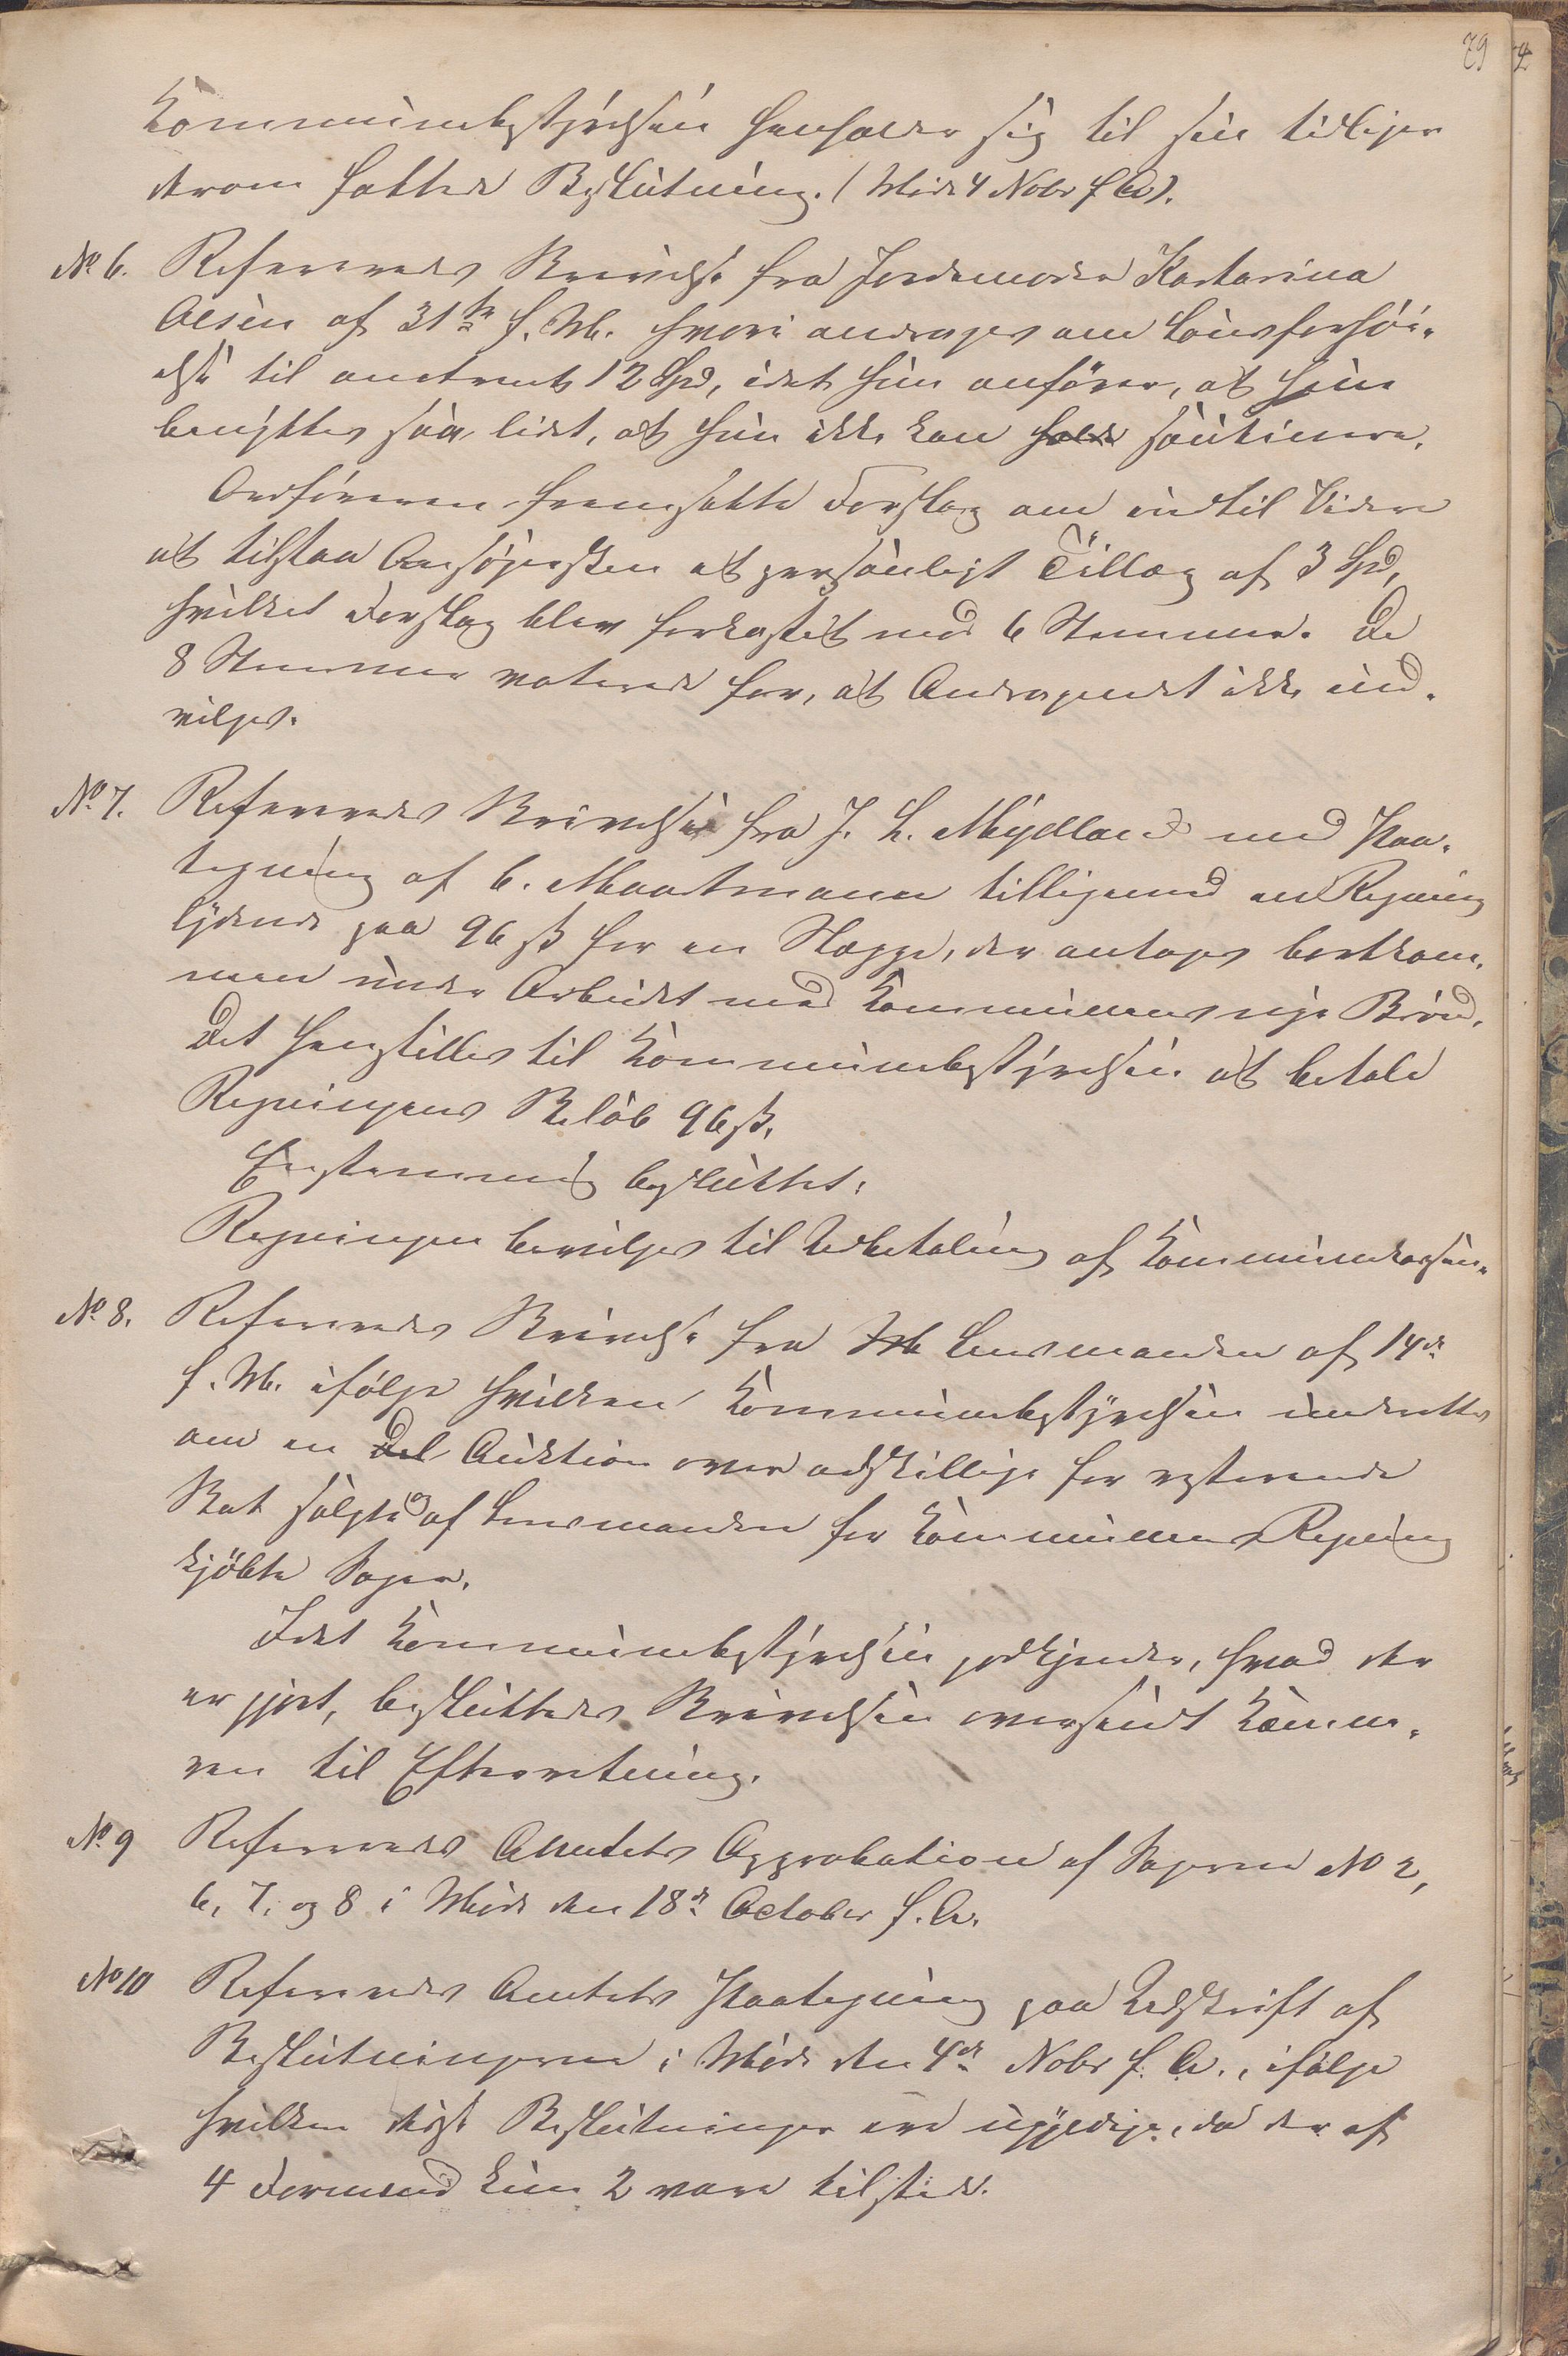 79
Kommunebestyrelsen henholder sig til sin tidligere
derom fattede Beslutning. (Møde 4 Nobr f. A.).
No 6. Refereredes Skrivelse fra Jordemoder Katarina
Olsen af 31te f. M. hvori andrages om Lønsforhøi-
else til anstrents 12 Spd, idet hun anfører, at hun
benyttes saa lidt, at hun ikke kan holde soutinere.
Ordføreren fremsatte Forslag om indtil Videre
at tilstaa Ansøgersken et personligt Tillæg af 3 Spd,
hvilket Forslag blev forkastet mod 6 Stemmer. De
8 Stemmer voterede for, at Andragendet ikke ind-
vilges.
No 7. Refereredes Skrivelse fra J. L. Mydland med Paa-
tegning af C. Maatmann tilligemed en Regning
lydende paa 96 ß for en Slægge, der antages bortkom-
men under Arbeidet med Kommunens nye Brønd.
Det henstilles til Kommunebestyrelsen at betale
Regningens Beløb 96 ß.
Enstemmig besluttet:
Regningen bevilges til Udbetaling af Kommunekassen.
No 8. Refereredes Skrivelse fra Lensmanden af 14de
f. M. ifølge hvilken Kommunebestyrelsen underrettes
om en Del Auktion over adskillige for resterende
Skat solgte og af Lensmanden for Kommunens Regning
kjøbte Sager.
Idet Kommunebestyrelsen godkjender, hvad der
er gjort, besluttedes Skrivelsen oversendt Kæmne-
ren til Efterretning.
No 9 Refereredes Amtets Approbation af Sagerne No 2,
6, 7, og 8 i Møde den 18de October f. A.
No 10 Refereredes Amtets Paategning paa Udskrift af
Beslutningerne i Møde den 4de Nobr f. A., ifølge
hvilken disse Beslutninger ere ugyldige, da der af
4 Formænd kun 2 vare tilstede.